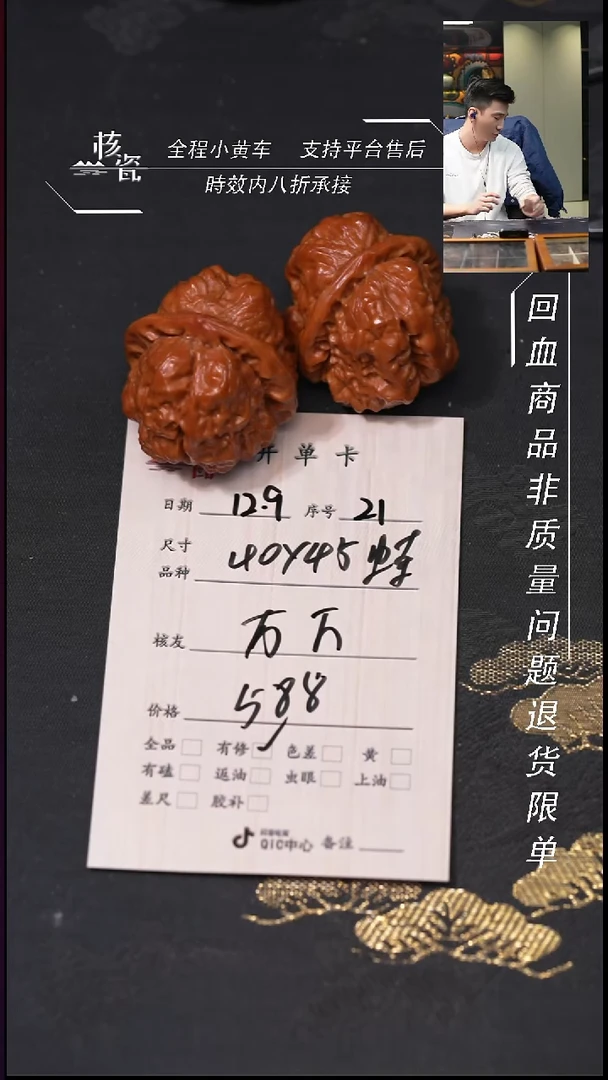 核瓷
全程小黄车 支持平台售后
時效内八折承接
回血商品非质量问题退货限单
开单卡
日期 12.9 序号 21
尺寸
品种 40X45 蛙
核友 万万
价格 588
全品 有修 色差 黄
有磕 返油 虫眼 上油
差尺 胶补
QIC中心 备注